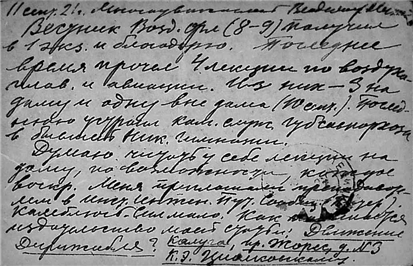 11 сент. 21 г. Многоуважаемый
Вестник Возд. Фл. (8-9) получил
в 1 экз. и благодарю. Последнее
время прочел 4 лекции по воздухо
плав. и авиации. Из них – 3 на
дому и одну вне дома (10 сент.). Послед-
нюю устроил
в бывшей Ник. гимназии.
Думаю читать у себе лекции на
дому, по возможности, каждое
воскр. Меня приглашают преподавате
лем в Инст. Инжен. Пут. Сообщ.
Колеблюсь. Сильно. Как
издательство моей Движение
Дирижабля? Калуга, ул. Жореса, д. №3
К. Э. Циолковский